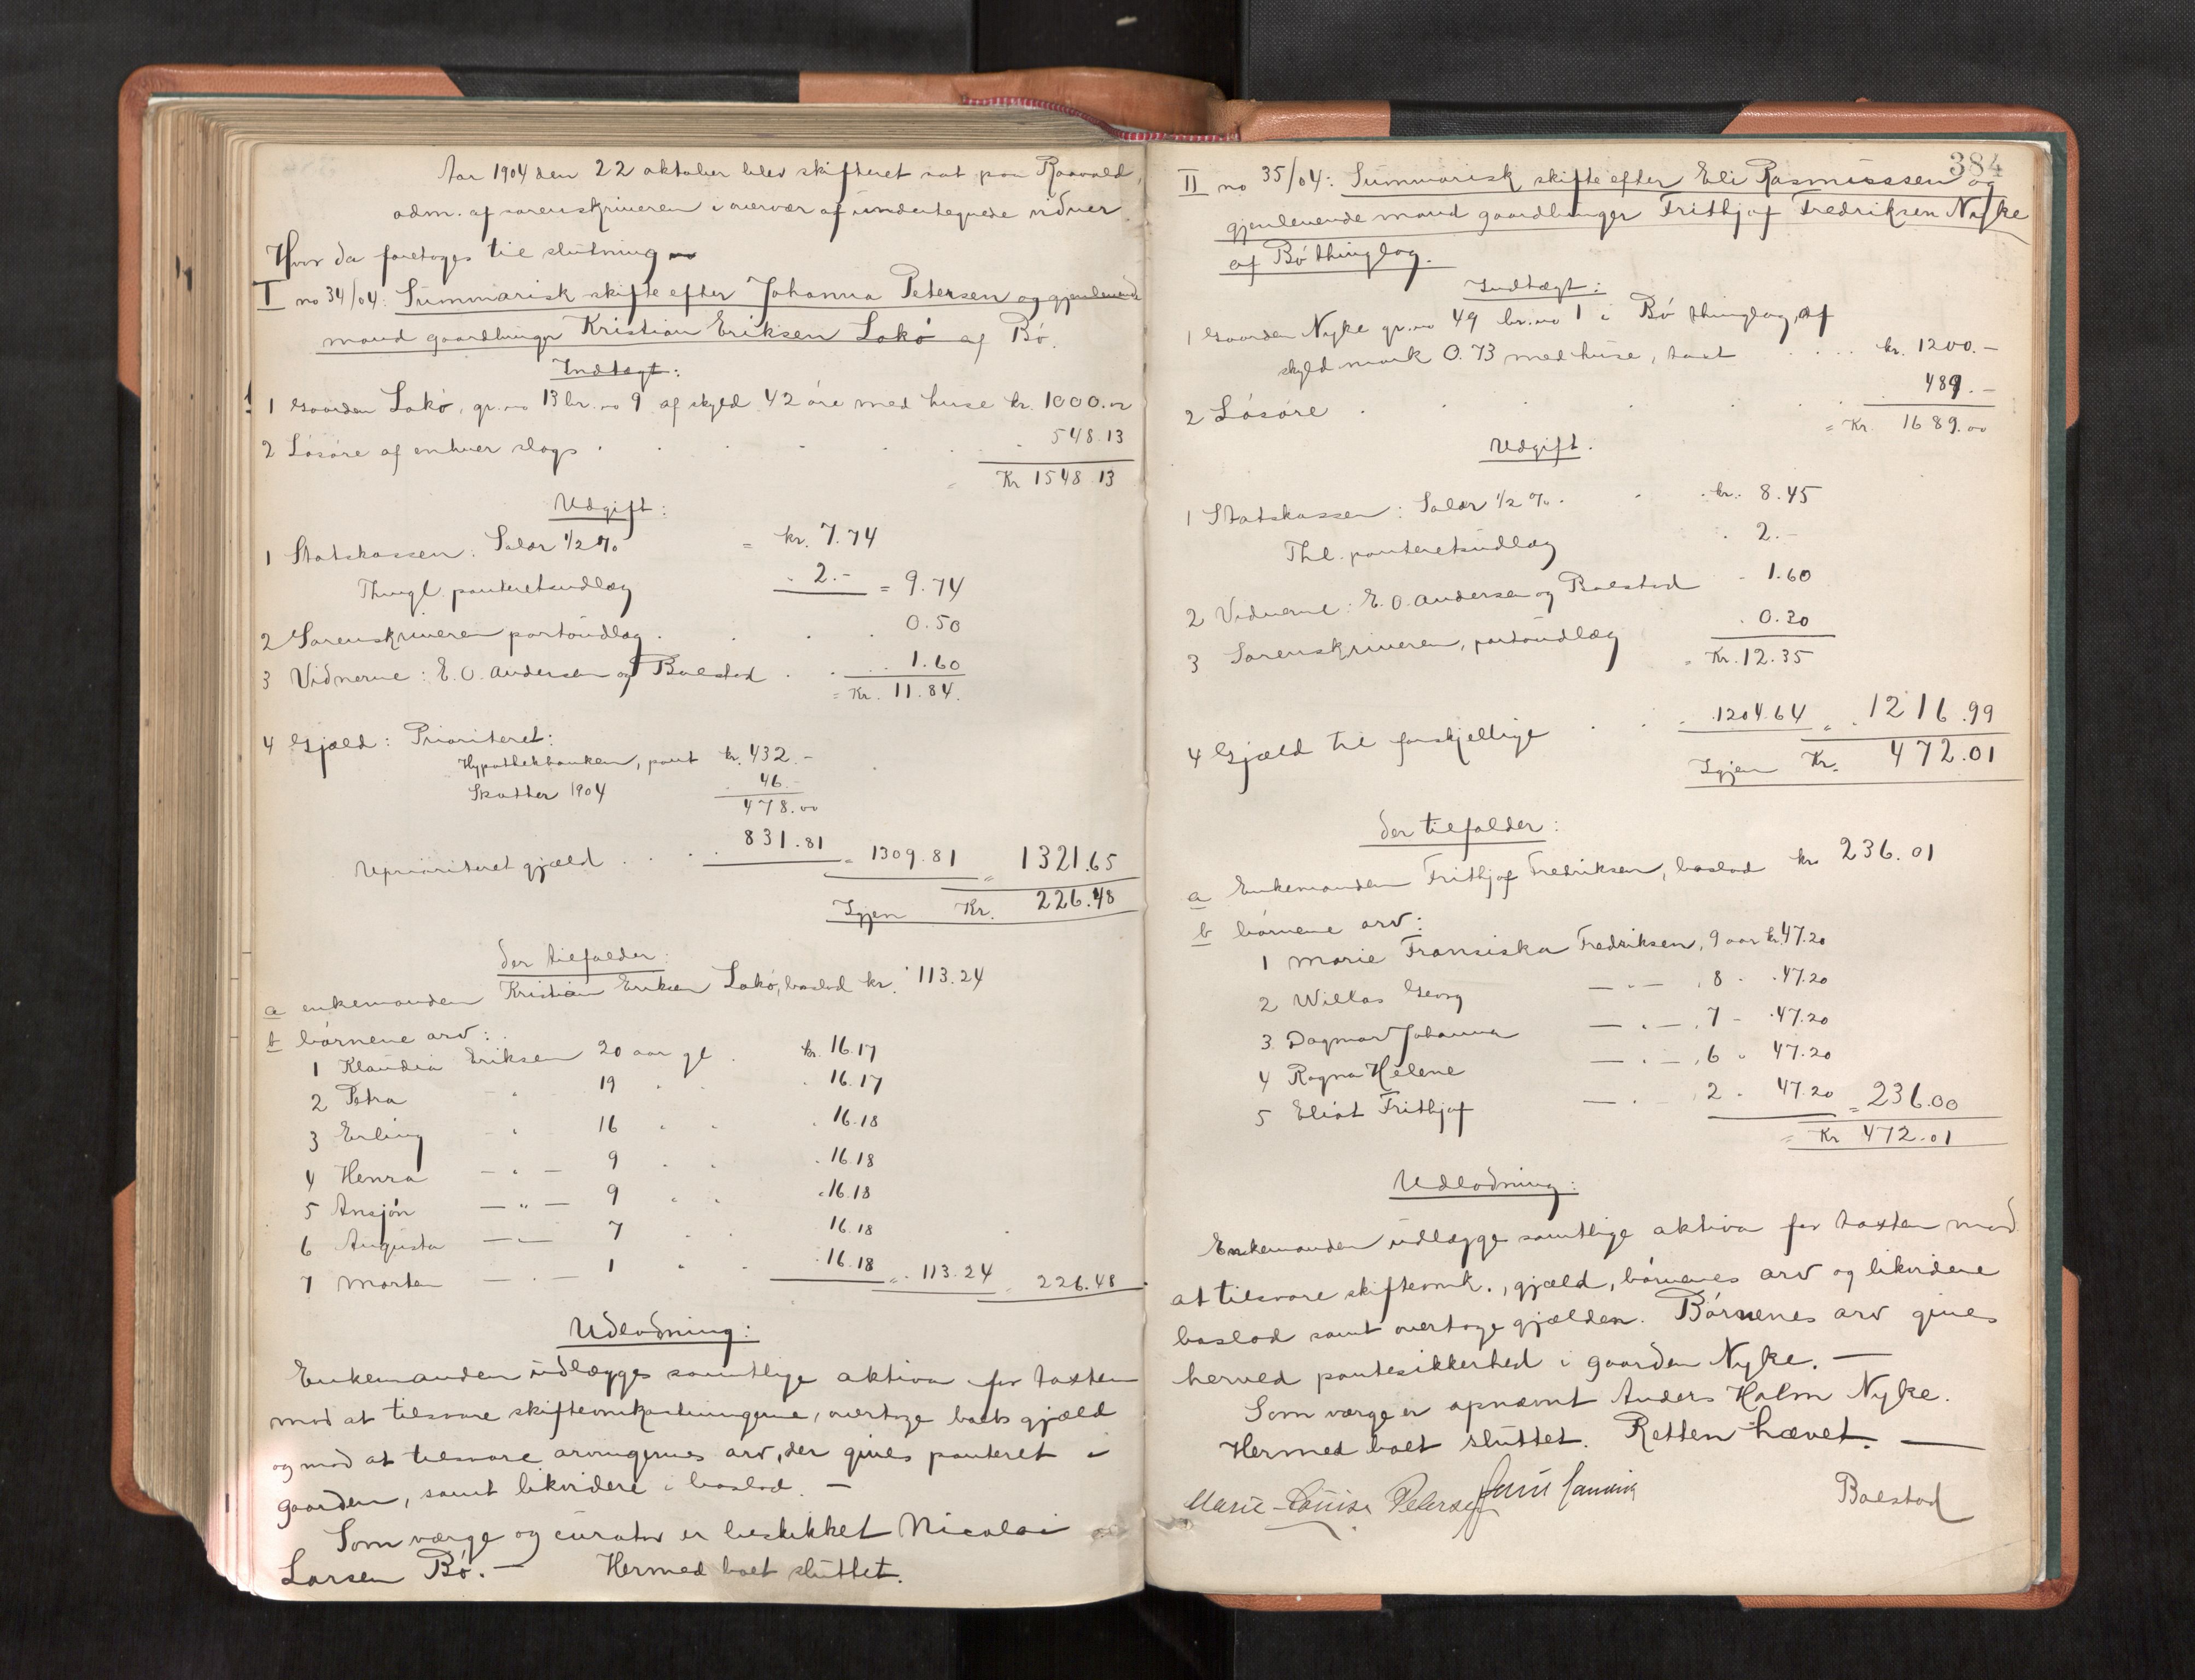 Aar 1904 den 22 oktober blev skifteret sat paa Raavold,
adm. af sorenskriveren i overvær af undertegnede vidner.
Hvor da foretoges til slutning
I no 34/04: Summarisk skifte efter Johanna Petersen og gjenlevende
mand gaardbruger Kristian Eriksen Lakø af Bø.
Indtægt:
1 Gaarden Lakø, gr. no 13 br. no 9 af skyld 42 øre med huse kr. 1000.00
2 Løsøre af enhver slags . . . . . 548.13
= Kr 1548.13
Udgift:
1 Statskassen: Salær 1/2 % = kr. 7.74
Thingl. panteretsudlæg . 2.- = 9.74
2 Sorenskriveren portoudlæg . . . . 0.50
3 Vidnerne: E. O. Andersen og Balstad . . . 1.60
= Kr. 11.84.
4 Gjæld: Prioriteret:
Hypothekbanken, pant kr. 432.-
Skatter 1904 . 46.-
478.00
Uprioriteret gjæld . . . . 831.81 = 1309.81 = 1321.65
Igjen Kr. 226.48
Der tilfalder:
a enkemanden Kristian Eriksen Lakø, boslod kr. 113.24
b børnene arv:
1 Klaudia Eriksen 20 aar gl . kr. 16.17
2 Petra " 19 . . . 16.17
3 Erling - " 16 " " . 16.18
4 Henra — " — 9 . . . 16.18
5 Ansjön — " — 9 " " . 16.18
6 Augusta — " — 7 . . 16.18
7 Marten — " — 1 " . . 16.18 = . 113.24 = 226.48
Udlodning:
Enkemanden udlægges samtlige aktiva for taxten
mod at tilsvare skifteomkostningerne, overtage boets gjæld
og mod at tilsvare arvingernes arv, der gives panteret i
gaarden, samt likvidere i boslod. —
Som værge og curator er beskikket Nicolai
Larsen Bø. — Hermed boet sluttet.
384
II no 35/04: Summarisk skifte efter Eli Rasmusssen og
gjenlevende mand gaardbruger Frithjof Fredriksen Nyke
af Bø thinglag.
Indtægt:
1 Gaarden Nyke gr. no 49 br. no 1 i Bø thinglag, af
skyld mark 0.73 med huse, taxt . . . . kr. 1200.-
2 Løsøre . . . . . . 489.-
= Kr. 1689.00
Udgift.
1 Statskassen: Salær 1/2 % . . . kr. 8.45
Thl. panteretsudlæg . 2.-
2 Vidnerne: E. O. Andersen og Balstad - 1.60
3 Sorenskriveren, portoudlæg . 0.30
= Kr. 12.35
4 Gjæld til forskjellige . . . 1204.64 = . 1216.99
Igjen Kr. 472.01
Der tilfalder:
a Enkemanden Frithjof Fredriksen, boslod kr 236.01
b børnene arv:
1 Marie Fransiska Fredriksen, 9 aar kr. 47.20
2 Willas Georg — " — , 8 - . 47.20
3 Dagmar Johanna — " — , 7 - . 47.20
4 Ragna Helene — " — , 6 " 47.20
5 Eliat Frithjof — " — , 2 - 47.20 = 236.00
= Kr 472.01
Udlodning:
Enkemanden udlægges samtlige aktiva for taxten mod
at tilsvare skifteomk., gjæld, børnenes arv og likvidere
boslod samt overtage gjælden. Børnenes arv gives
herved pantesikkerhed i gaarden Nyke. —
Som værge er opnævnt Anders Holm Nyke.
Hermed boet sluttet. Retten hævet. —
Marie-Louise Petersen Balstad